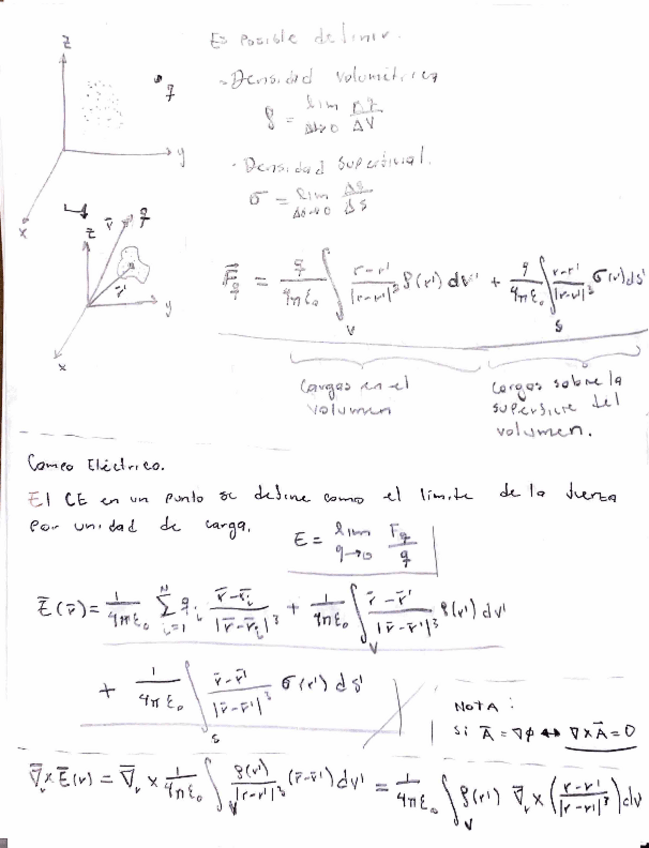 Es posible definir.
z
q
y
x
- Densidad volumétrica
ρ = lim Δv→0 Δq/ΔV
- Densidad superficial.
σ = lim Δs→0 Δq/ΔS
z r̄ q
r̄'
y
x
F̄_q = q/4πε₀ ∫_V r-r'/|r-r'|³ ρ(r') dv' + q/4πε₀ ∫_S r-r'/|r-r'|³ σ(r') ds'
Cargas en el volumen
Cargas sobre la superficie del volumen.
Campo Eléctrico.
El CE en un punto se define como el límite de la fuerza
por unidad de carga.
E = lim q→0 F_q/q
Ē(r̄) = 1/4πε₀ Σ_{i=1}^N q_i r̄-r̄_i/|r̄-r̄_i|³ + 1/4πε₀ ∫_V r̄-r̄'/|r̄-r̄'|³ ρ(r') dv'
+ 1/4πε₀ ∫_S r̄-r̄'/|r̄-r̄'|³ σ(r') ds'
NOTA:
Si Ā = ∇φ ↔ ∇×Ā = 0
∇̄_r × Ē(r) = ∇̄_r × 1/4πε₀ ∫_V ρ(r')/|r-r'|³ (r̄-r̄') dv' = 1/4πε₀ ∫_V ρ(r') ∇̄_r × (r-r'/|r-r'|³) dv